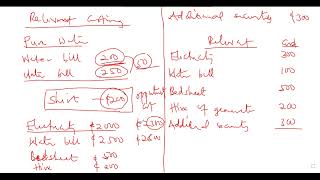 Relevant Costing
Pure Water
Water bill 200
Water bill 250 50
Shirt ¢200 opportunity cost
Electricity ¢2000 ¢2300
Water bill ¢2500 ¢2600
Bedsheet ¢500
Hire ¢200
Additional security ¢300
Relevant Cost
Electricity 300
Water bill 100
Bedsheet 500
Hire of generator 200
Additional security 300